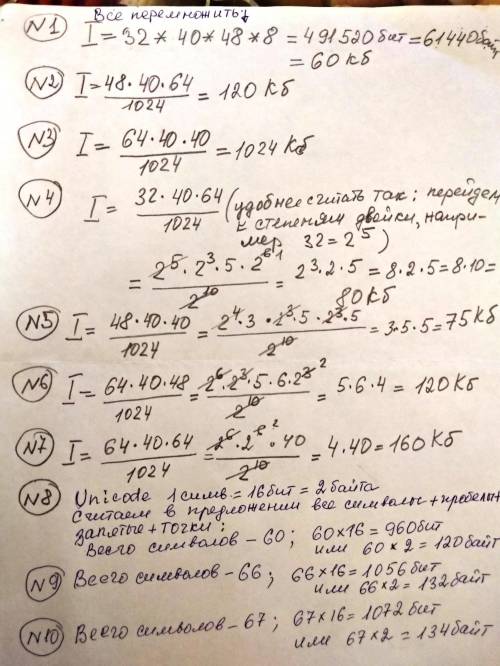 Все перемножить:
№1 I = 32 * 40 * 48 * 8 = 491520 бит = 61440 байт
= 60 кб
№2 I = 48·40·64 / 1024 = 120 Кб
№3 I = 64·40·40 / 1024 = 1024 Кб
№4 I = 32·40·64 / 1024 (удобнее считать так: перейдем
к степеням двойки, напри-
мер 32 = 2^5)
= 2^5·2^3·5·2^6 1 / 2^10 = 2^3·2·5 = 8·2·5 = 8·10 =
80 Кб
№5 I = 48·40·40 / 1024 = 2^4·3·2^3·5·2^3·5 / 2^10 = 3·5·5 = 75 Кб
№6 I = 64·40·48 / 1024 = 2^6·2^3·5·6·2^3 2 / 2^10 = 5·6·4 = 120 Кб
№7 I = 64·40·64 / 1024 = 2^6·2^6 2·40 / 2^10 = 4·40 = 160 Кб
№8 Unicode 1 симв = 16 бит = 2 байта
Считаем в предложении все символы + пробелы +
запятые + точки:
Всего символов - 60; 60×16 = 960 бит
или 60×2 = 120 байт
№9 Всего символов - 66; 66×16 = 1056 бит
или 66×2 = 132 байт
№10 Всего символов - 67; 67×16 = 1072 бит
или 67×2 = 134 байт